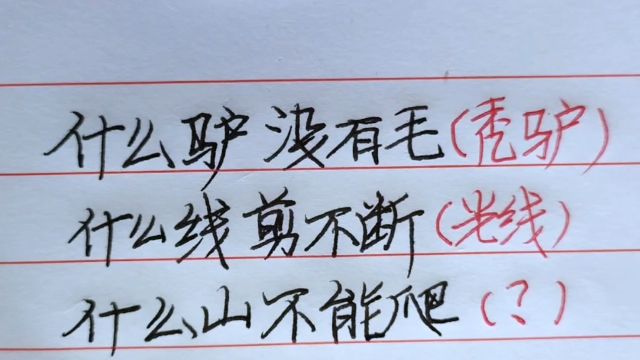 什么驴没有毛(秃驴)
什么线剪不断(光线)
什么山不能爬(?)